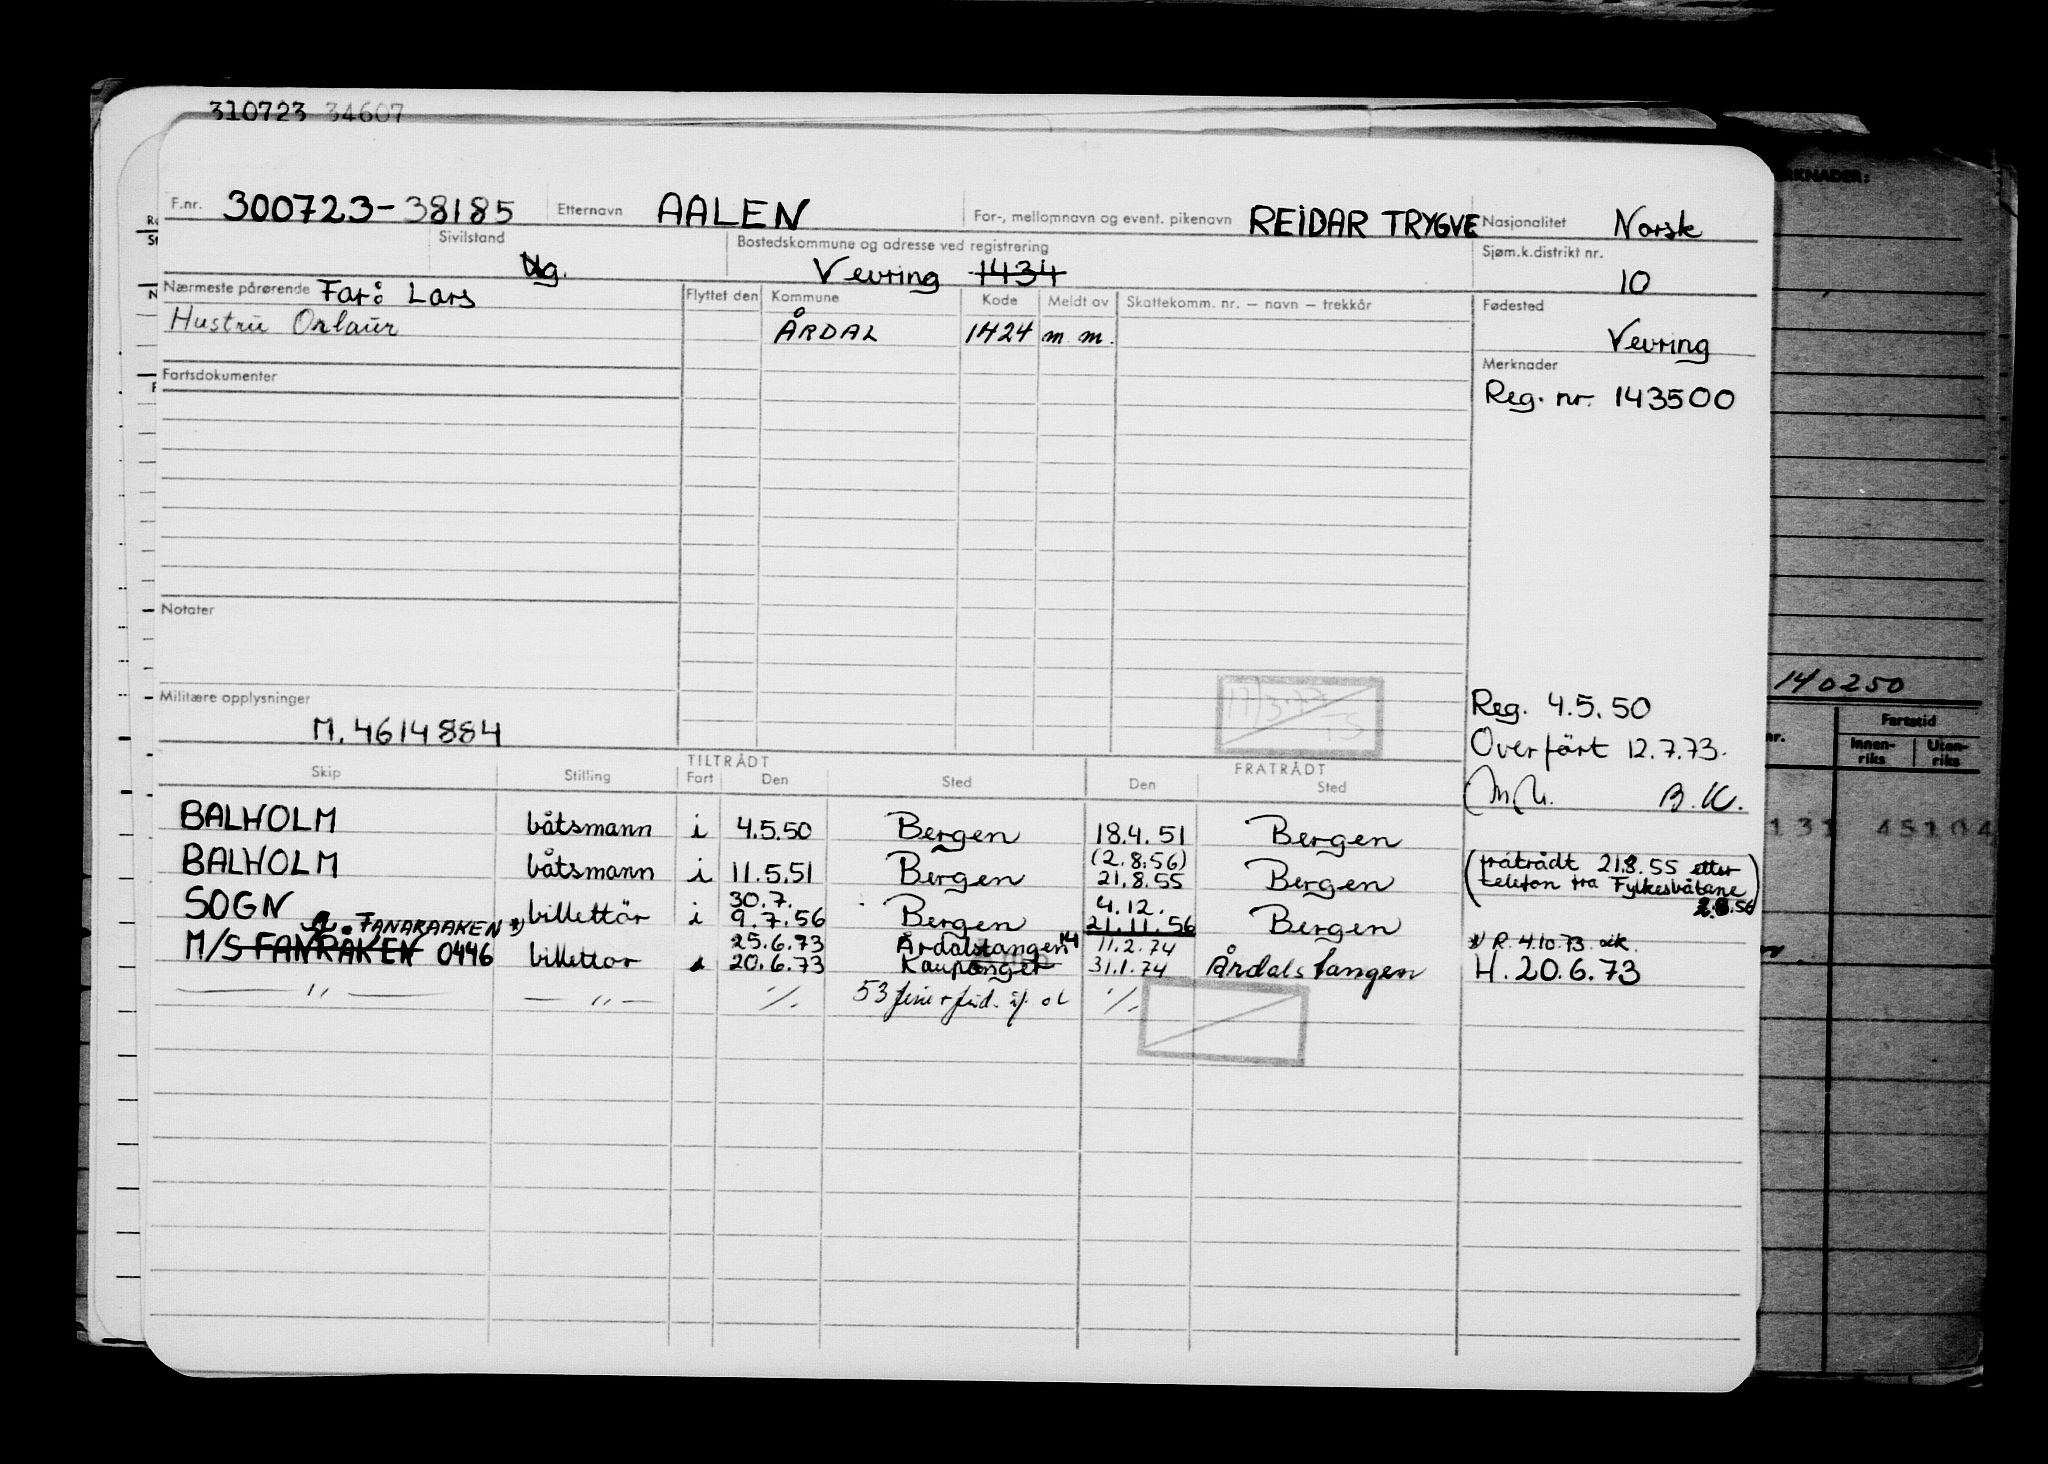 310723 34607
F.nr. 300723-38185 Etternavn AALEN For-, mellomnavn og event. pikenavn REIDAR TRYGVE Nasjonalitet Norsk
Sivilstand Ug. Bostedskommune og adresse ved registrering Vevring 1434 Sjøm.k.distrikt nr. 10
Nærmeste pårørende Far: Lars Flyttet den Kommune Kode Meldt av Skattekomm. nr. – navn – trekkår Fødested
Hustru ÅRDAL 1424 m m. Vevring
Fartsdokumenter Merknader
Reg. nr. 143500
Notater
Militære opplysninger M. 4614884
Reg. 4.5.50
Overført 12.7.73.
B.K.
TILTRÅDT FRATRÅDT
Skip Stilling Fart Den Sted Den Sted
BALHOLM båtsmann i 4.5.50 Bergen 18.4.51 Bergen
(2.8.56)
BALHOLM båtsmann i 11.5.51 Bergen 21.8.55 Bergen (fratrådt 21.8.55 etter telefon fra Fylkesbåtane 2.8.56)
30.7. 4.12.
SOGN billettör i 9.7.56 Bergen 21.11.56 Bergen
FANARAAKEN *) 25.6.73 Årdalstangen 11.2.74 *) R. 4.10.73
M/S FANRAKEN 0446 billettör 20.6.73 Kaupanger 31.1.74 Årdalstangen H. 20.6.73
— " — — " — ./. 53 ./.
RKNADER:
140250
nr. Fartstid
Innen-riks Uten-riks
131 45104